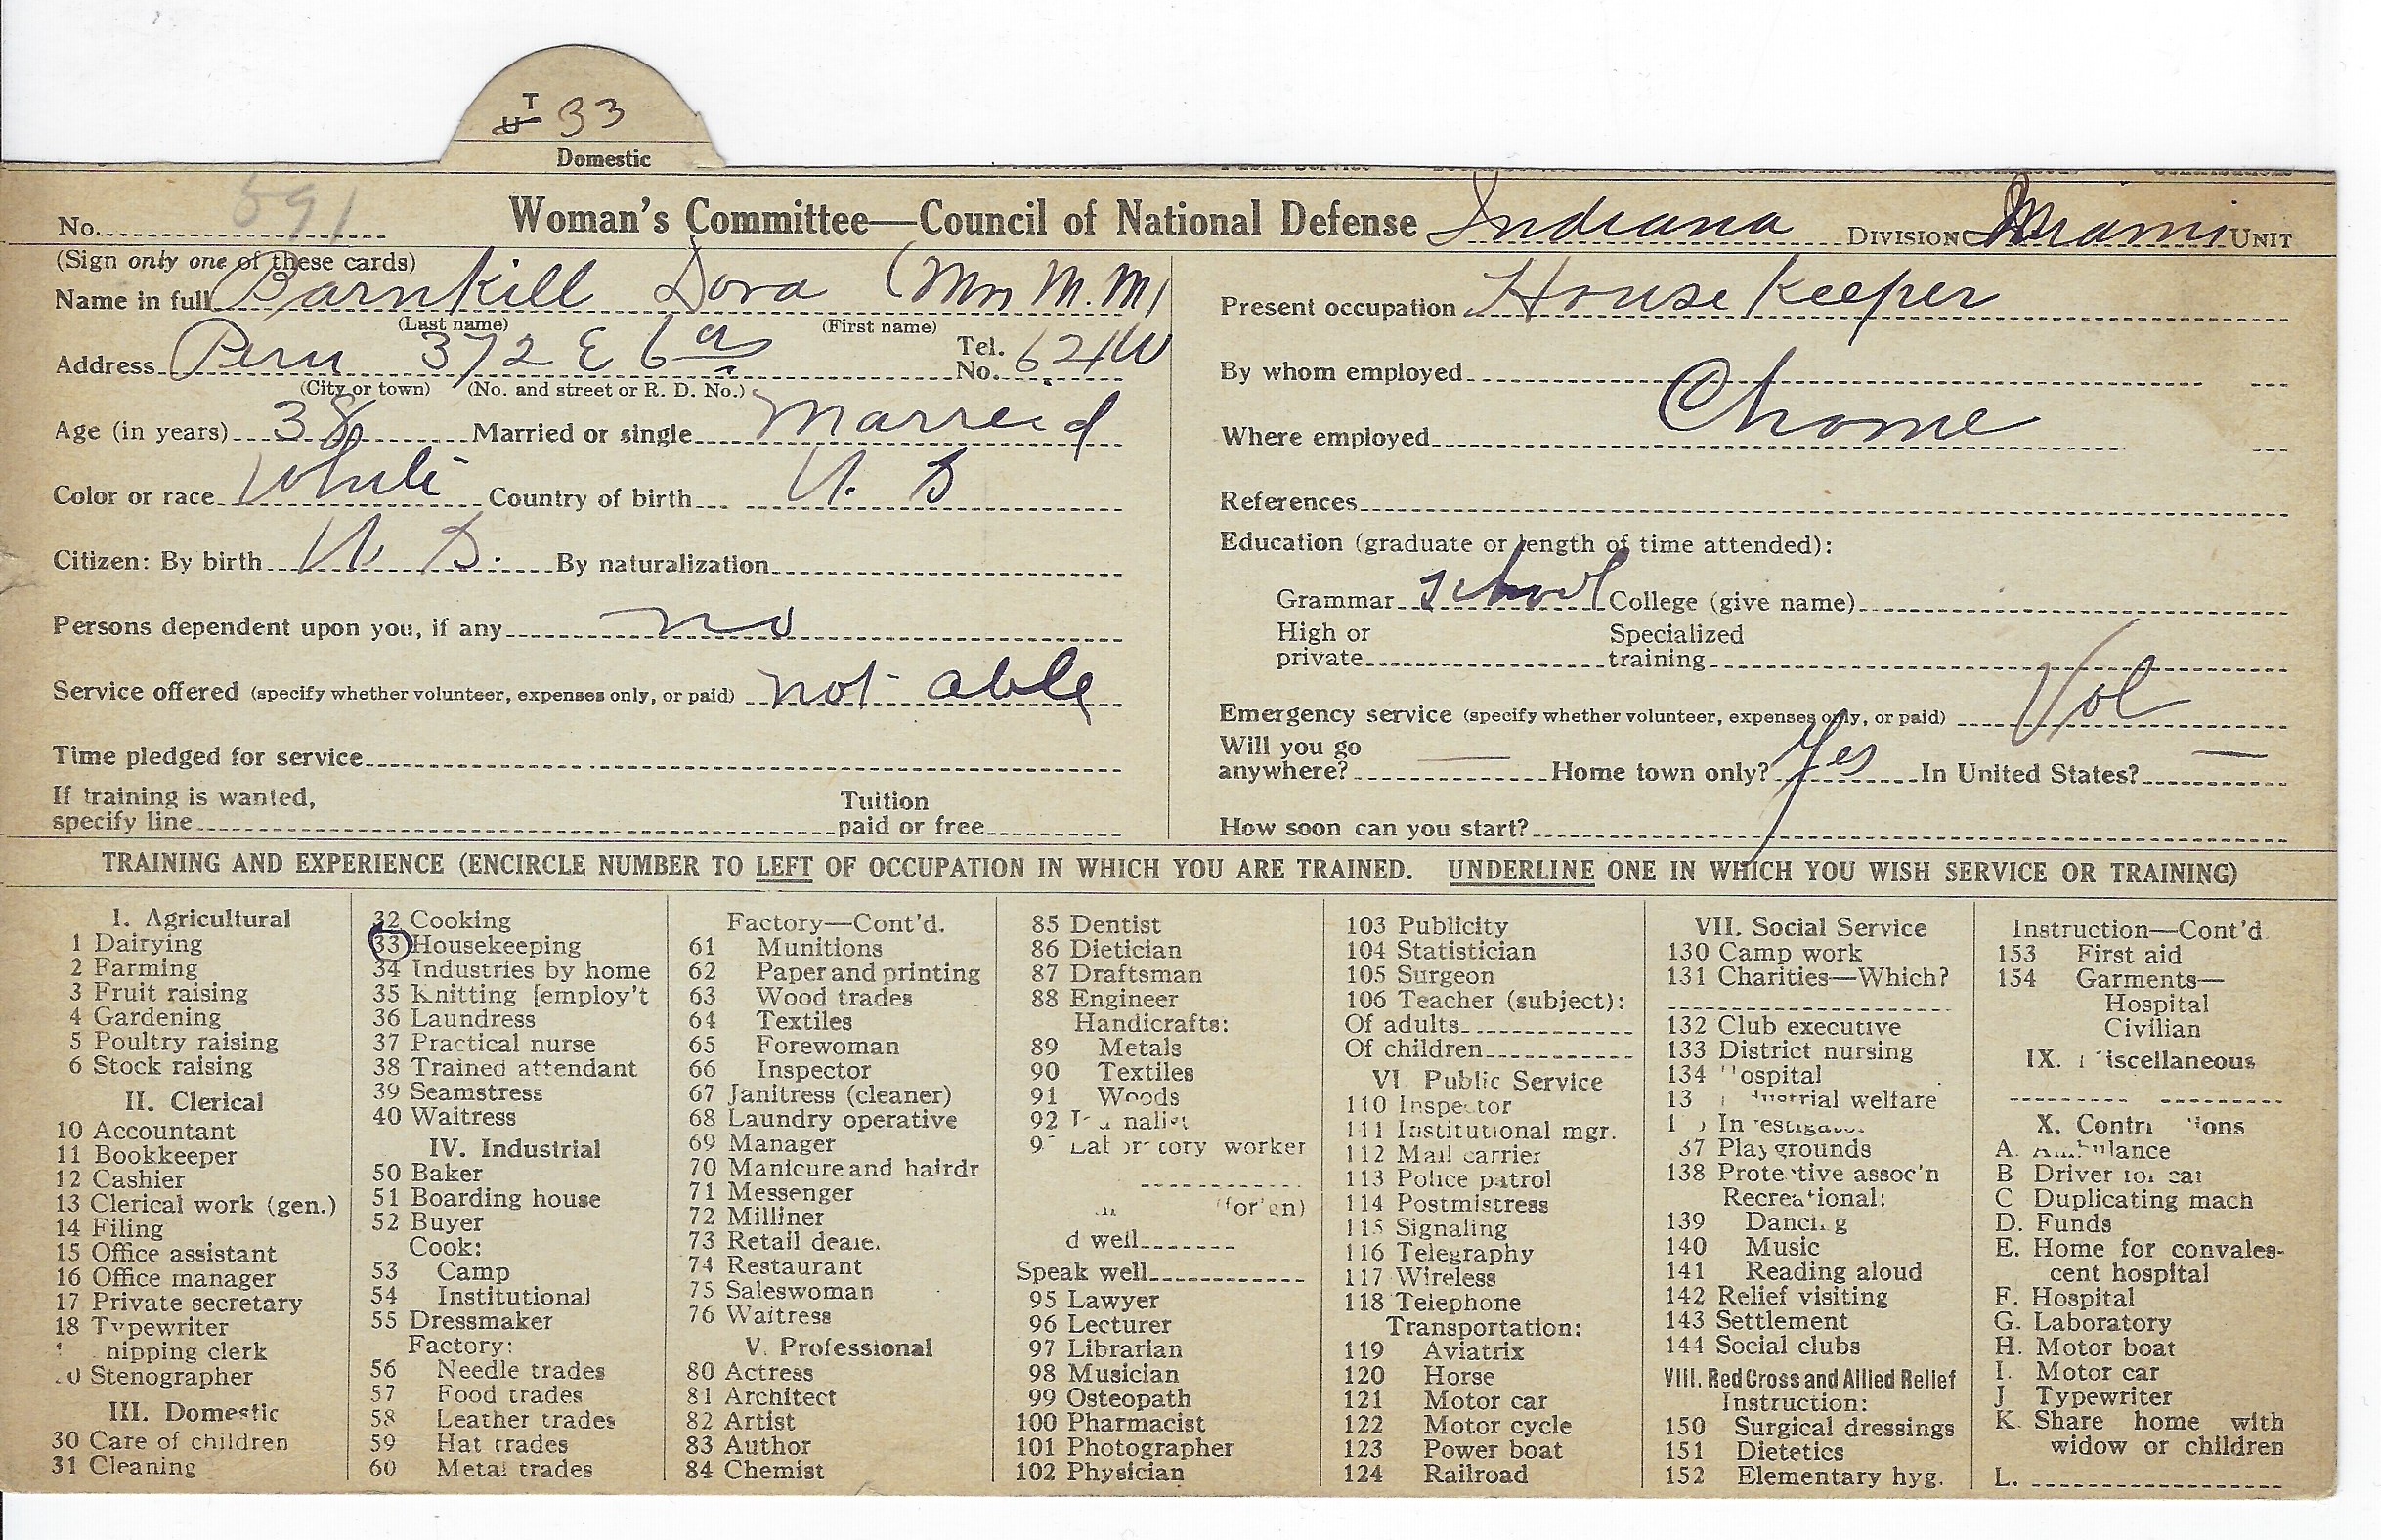 T
U 33
Domestic
No. 591
Woman's Committee—Council of National Defense Indiana DIVISION Miami UNIT
(Sign only one of these cards)
Name in full Barnhill Dora (Mrs M. M)
(Last name) (First name)
Address Peru 372 E 6th Tel. No. 621W
(City or town) (No. and street or R. D. No.)
Age (in years) 38 Married or single Marreid
Color or race White Country of birth U. S
Citizen: By birth U. S. By naturalization
Persons dependent upon you, if any no
Service offered (specify whether volunteer, expenses only, or paid) not able
Time pledged for service
If training is wanted,
specify line Tuition paid or free
Present occupation House Keeper
By whom employed
Where employed @home
References
Education (graduate or length of time attended):
Grammar school College (give name)
High or private Specialized training
Emergency service (specify whether volunteer, expenses only, or paid) Vol
Will you go anywhere? — Home town only? Yes In United States? —
How soon can you start?
TRAINING AND EXPERIENCE (ENCIRCLE NUMBER TO LEFT OF OCCUPATION IN WHICH YOU ARE TRAINED. UNDERLINE ONE IN WHICH YOU WISH SERVICE OR TRAINING)
I. Agricultural
1 Dairying
2 Farming
3 Fruit raising
4 Gardening
5 Poultry raising
6 Stock raising
II. Clerical
10 Accountant
11 Bookkeeper
12 Cashier
13 Clerical work (gen.)
14 Filing
15 Office assistant
16 Office manager
17 Private secretary
18 Typewriter
hipping clerk
0 Stenographer
III. Domestic
30 Care of children
31 Cleaning
32 Cooking
33 Housekeeping
34 Industries by home
35 Knitting [employ't
36 Laundress
37 Practical nurse
38 Trained attendant
39 Seamstress
40 Waitress
IV. Industrial
50 Baker
51 Boarding house
52 Buyer
Cook:
53 Camp
54 Institutional
55 Dressmaker
Factory:
56 Needle trades
57 Food trades
58 Leather trades
59 Hat trades
60 Metal trades
Factory—Cont'd.
61 Munitions
62 Paper and printing
63 Wood trades
64 Textiles
65 Forewoman
66 Inspector
67 Janitress (cleaner)
68 Laundry operative
69 Manager
70 Manicure and hairdr
71 Messenger
72 Milliner
73 Retail deale.
74 Restaurant
75 Saleswoman
76 Waitress
V. Professional
80 Actress
81 Architect
82 Artist
83 Author
84 Chemist
85 Dentist
86 Dietician
87 Draftsman
88 Engineer
Handicrafts:
89 Metals
90 Textiles
91 Woods
92
worker
d well
Speak well
95 Lawyer
96 Lecturer
97 Librarian
98 Musician
99 Osteopath
100 Pharmacist
101 Photographer
102 Physician
103 Publicity
104 Statistician
105 Surgeon
106 Teacher (subject):
Of adults
Of children
VI. Public Service
110 Inspector
111 Institutional mgr.
112 Mail carrier
113 Police patrol
114 Postmistress
115 Signaling
116 Telegraphy
117 Wireless
118 Telephone
Transportation:
119 Aviatrix
120 Horse
121 Motor car
122 Motor cycle
123 Power boat
124 Railroad
VII. Social Service
130 Camp work
131 Charities—Which?
132 Club executive
133 District nursing
134 ospital
13 welfare
37 Playgrounds
138 Protective assoc'n
Recreational:
139 Dancing
140 Music
141 Reading aloud
142 Relief visiting
143 Settlement
144 Social clubs
VIII. Red Cross and Allied Relief
Instruction:
150 Surgical dressings
151 Dietetics
152 Elementary hyg.
Instruction—Cont'd
153 First aid
154 Garments—
Hospital
Civilian
IX. iscellaneous
X. Contri ions
A. Ambulance
B Driver for car
C Duplicating mach
D. Funds
E. Home for convales-
cent hospital
F. Hospital
G. Laboratory
H. Motor boat
I. Motor car
J Typewriter
K. Share home with
widow or children
L.